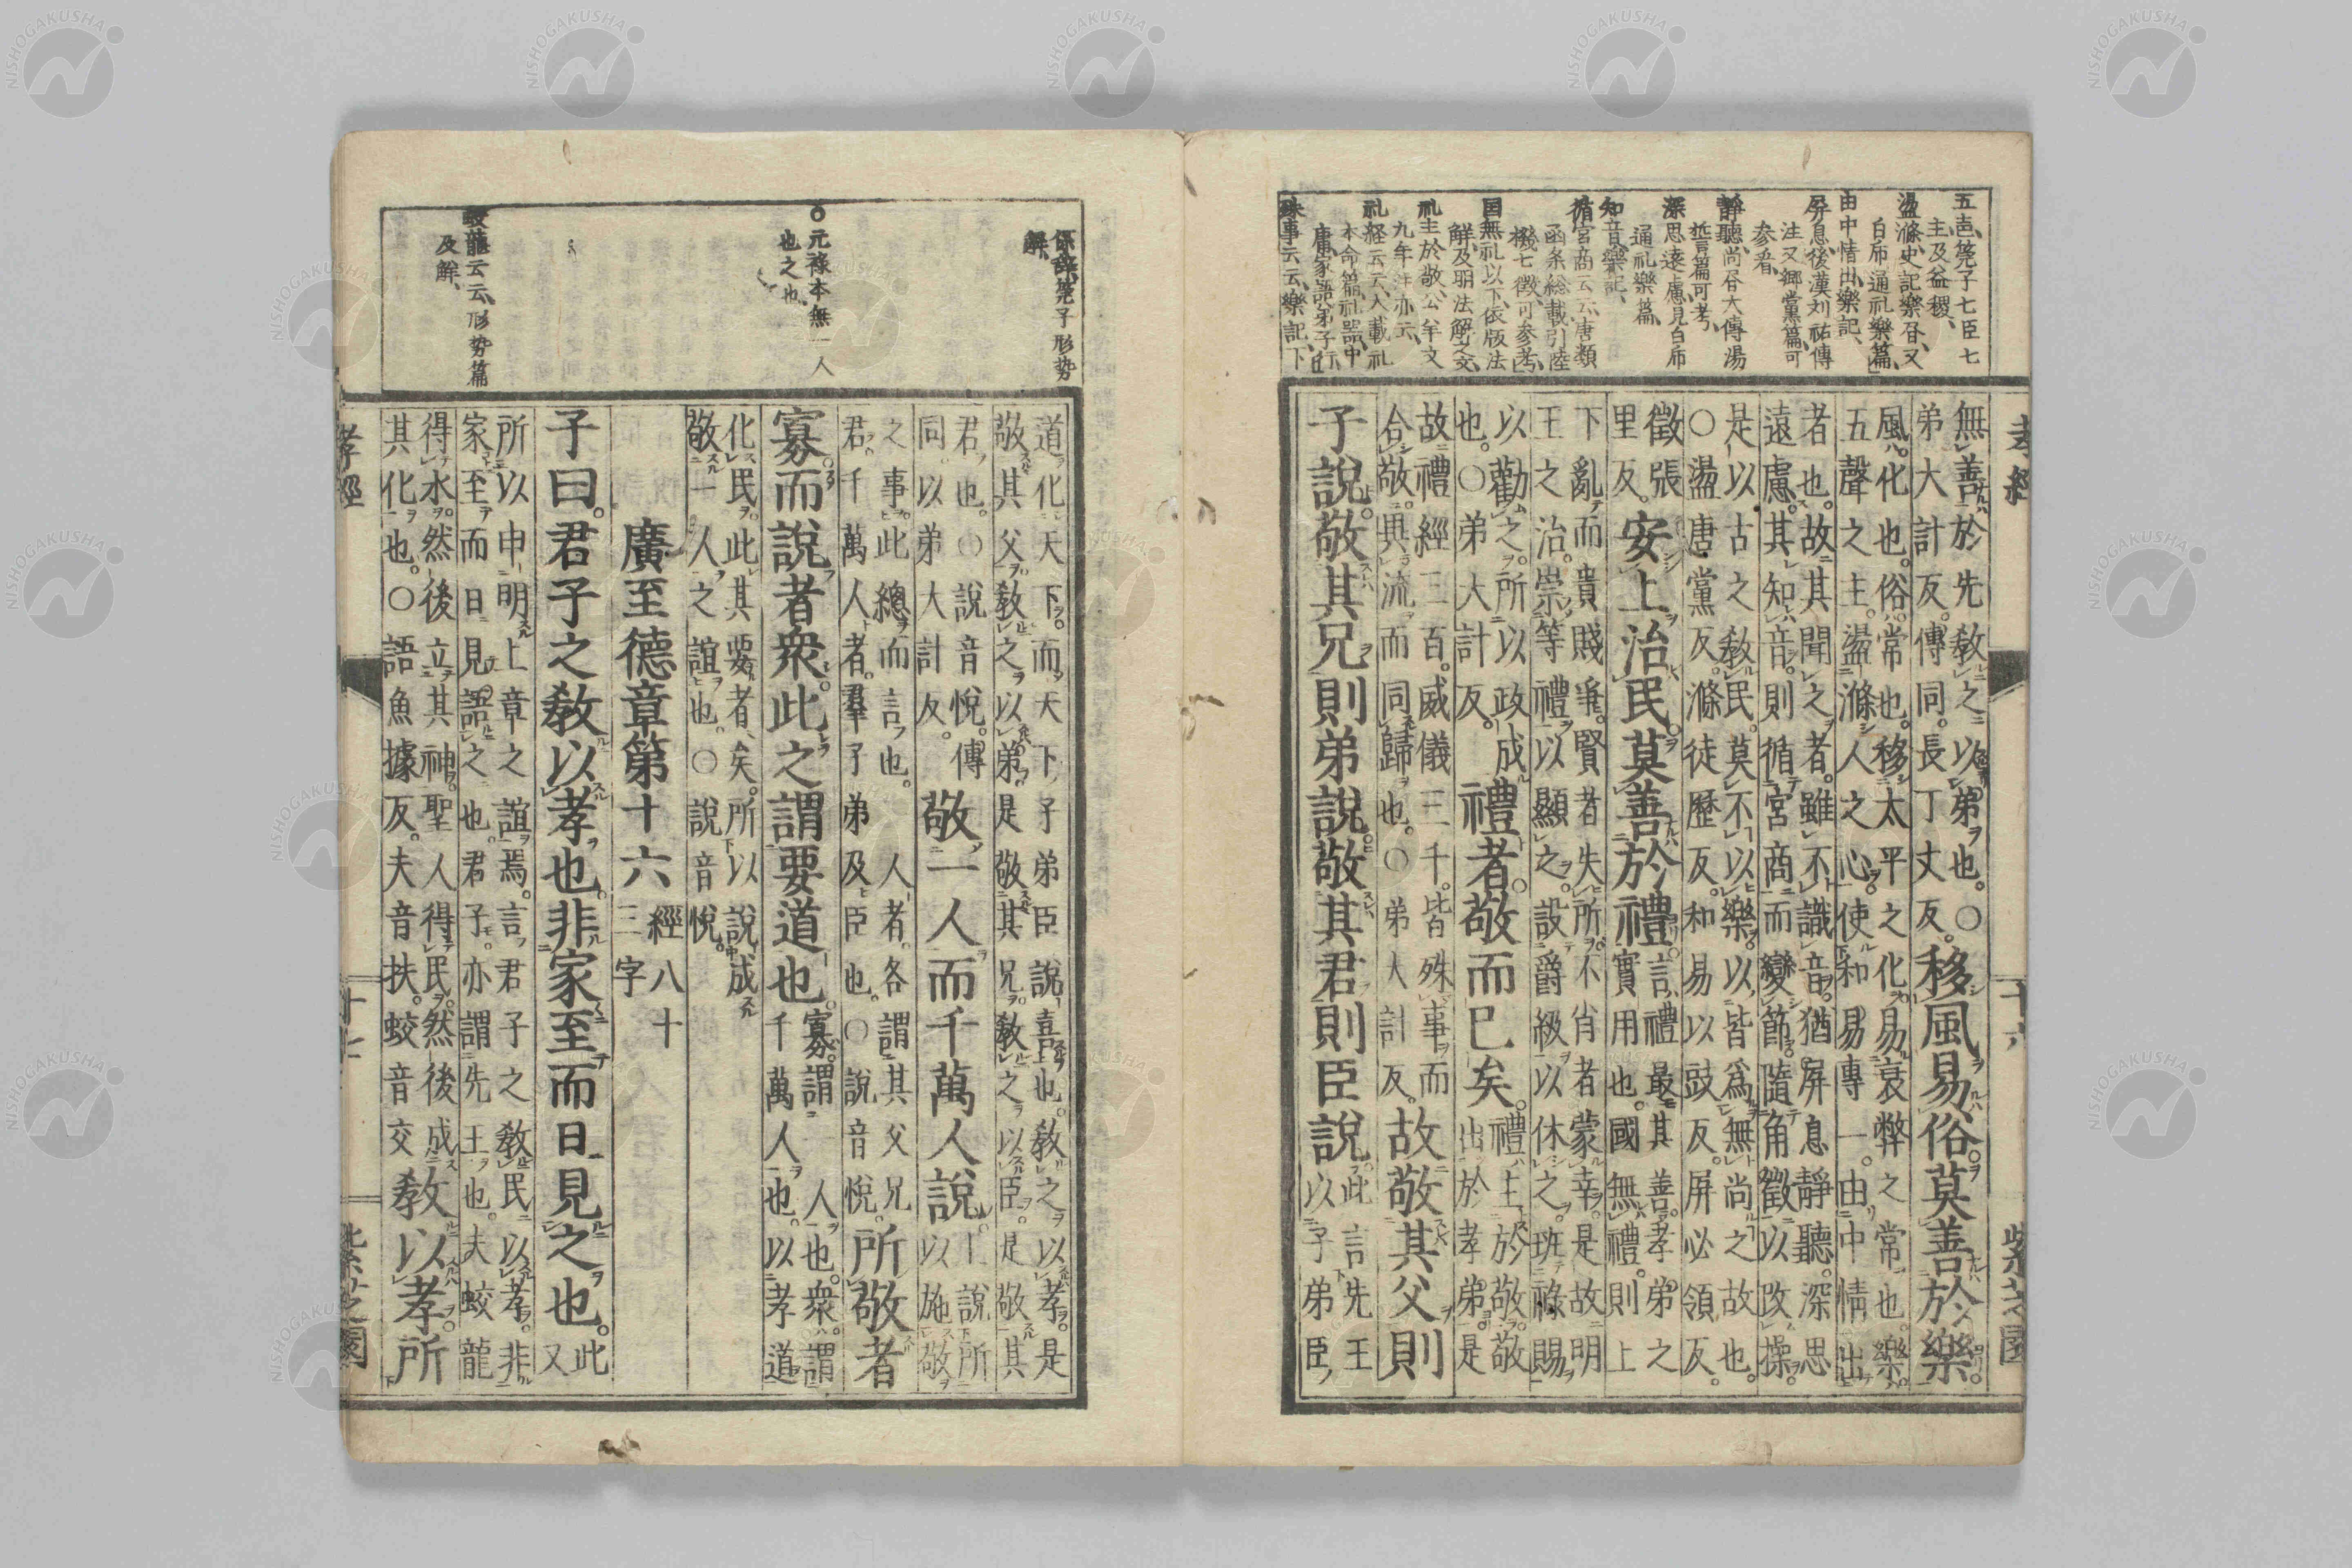 五声、筦子七臣七
主及益稷、
盪滌、史記樂昏、又
白乕通礼樂篇、
由中情出、樂記、
屏息、後漢刘祐傳
注又郷黨篇可
参看、
靜聽、尚昏大傳湯
誓篇可考、
深思遠慮、見白乕
通礼樂篇、
知音、樂記、
循宮商云云、唐類
函条総載引陸
機七徴可参考、
国無礼以下、依版法
解及明法解之文、
礼主於敬、公羊文
九年注亦云、
礼経云云、大載礼
本命篇礼器中
庸家語弟子行、
殊事云云、樂記、下
孝經
十六
紫芝園
無善於先教之以弟也。○
弟大計反。傳同。長丁丈反。
移風易俗。莫善於樂。
風。化也。俗。常也。移太平之化。易衰弊之常也。樂。
五聲之主。盪滌人之心。使和易專一。由中情出
者也。故其聞之者。雖不識音。猶屏息靜聽。深思
遠慮。其知音。則循宮商而變節。隨角徵以改操。
是以古之教民。莫不以樂。以皆爲無尚之故也。
○盪唐黨反。滌徒歷反。和易以豉反。屏必領反。
徵張
里反。
安上治民。莫善於禮。
言禮最其善。孝弟之
實用也。國無禮。則上
下亂而貴賤爭。賢者失所。不肖者蒙幸。是故明
王之治。崇等禮以顯之。設爵級以休之。班祿賜
以勸之。所以政成
也。○弟大計反。
禮者。敬而已矣。
禮主於敬。敬
出於孝弟。是
故禮經三百。威儀三千。皆殊事而
合敬。異流而同歸也。○弟大計反。
故敬其父則
子說。敬其兄則弟說。敬其君則臣說
此言先王
以子弟臣
係辞、筦子形勢
解、
○元祿本無一人
也之也、
蛟龍云云、形势篇
及解、
道化天下。而天下子弟臣說喜也。教之以孝。是
敬其父。教之以弟。是敬其兄。教之以臣。是敬其
君也。○說音悅。傳
同。以弟大計反。
敬一人而千萬人說。
上說所
以施敬
之事。此總而言也。一人者。各謂其父兄
君。千萬人者。羣子弟及臣也。○說音悅。
所敬者
寡而說者衆。此之謂要道也。
寡。謂一人也。衆。謂
千萬人也。以孝道
化民。此其要者矣。所以說成
敬一人之誼也。○說音悅。
廣至德章第十六
經八十
三字
子曰。君子之教以孝也。非家至而日見之也。
此
又
所以申明上章之誼焉。言君子之教民以孝。非
家至而日見語之也。君子。亦謂先王也。夫蛟龍
得水。然後立其神。聖人得民。然後成
其化也。○語魚據反。夫音扶。蛟音交
教以孝。所
孝經
十七
紫芝園